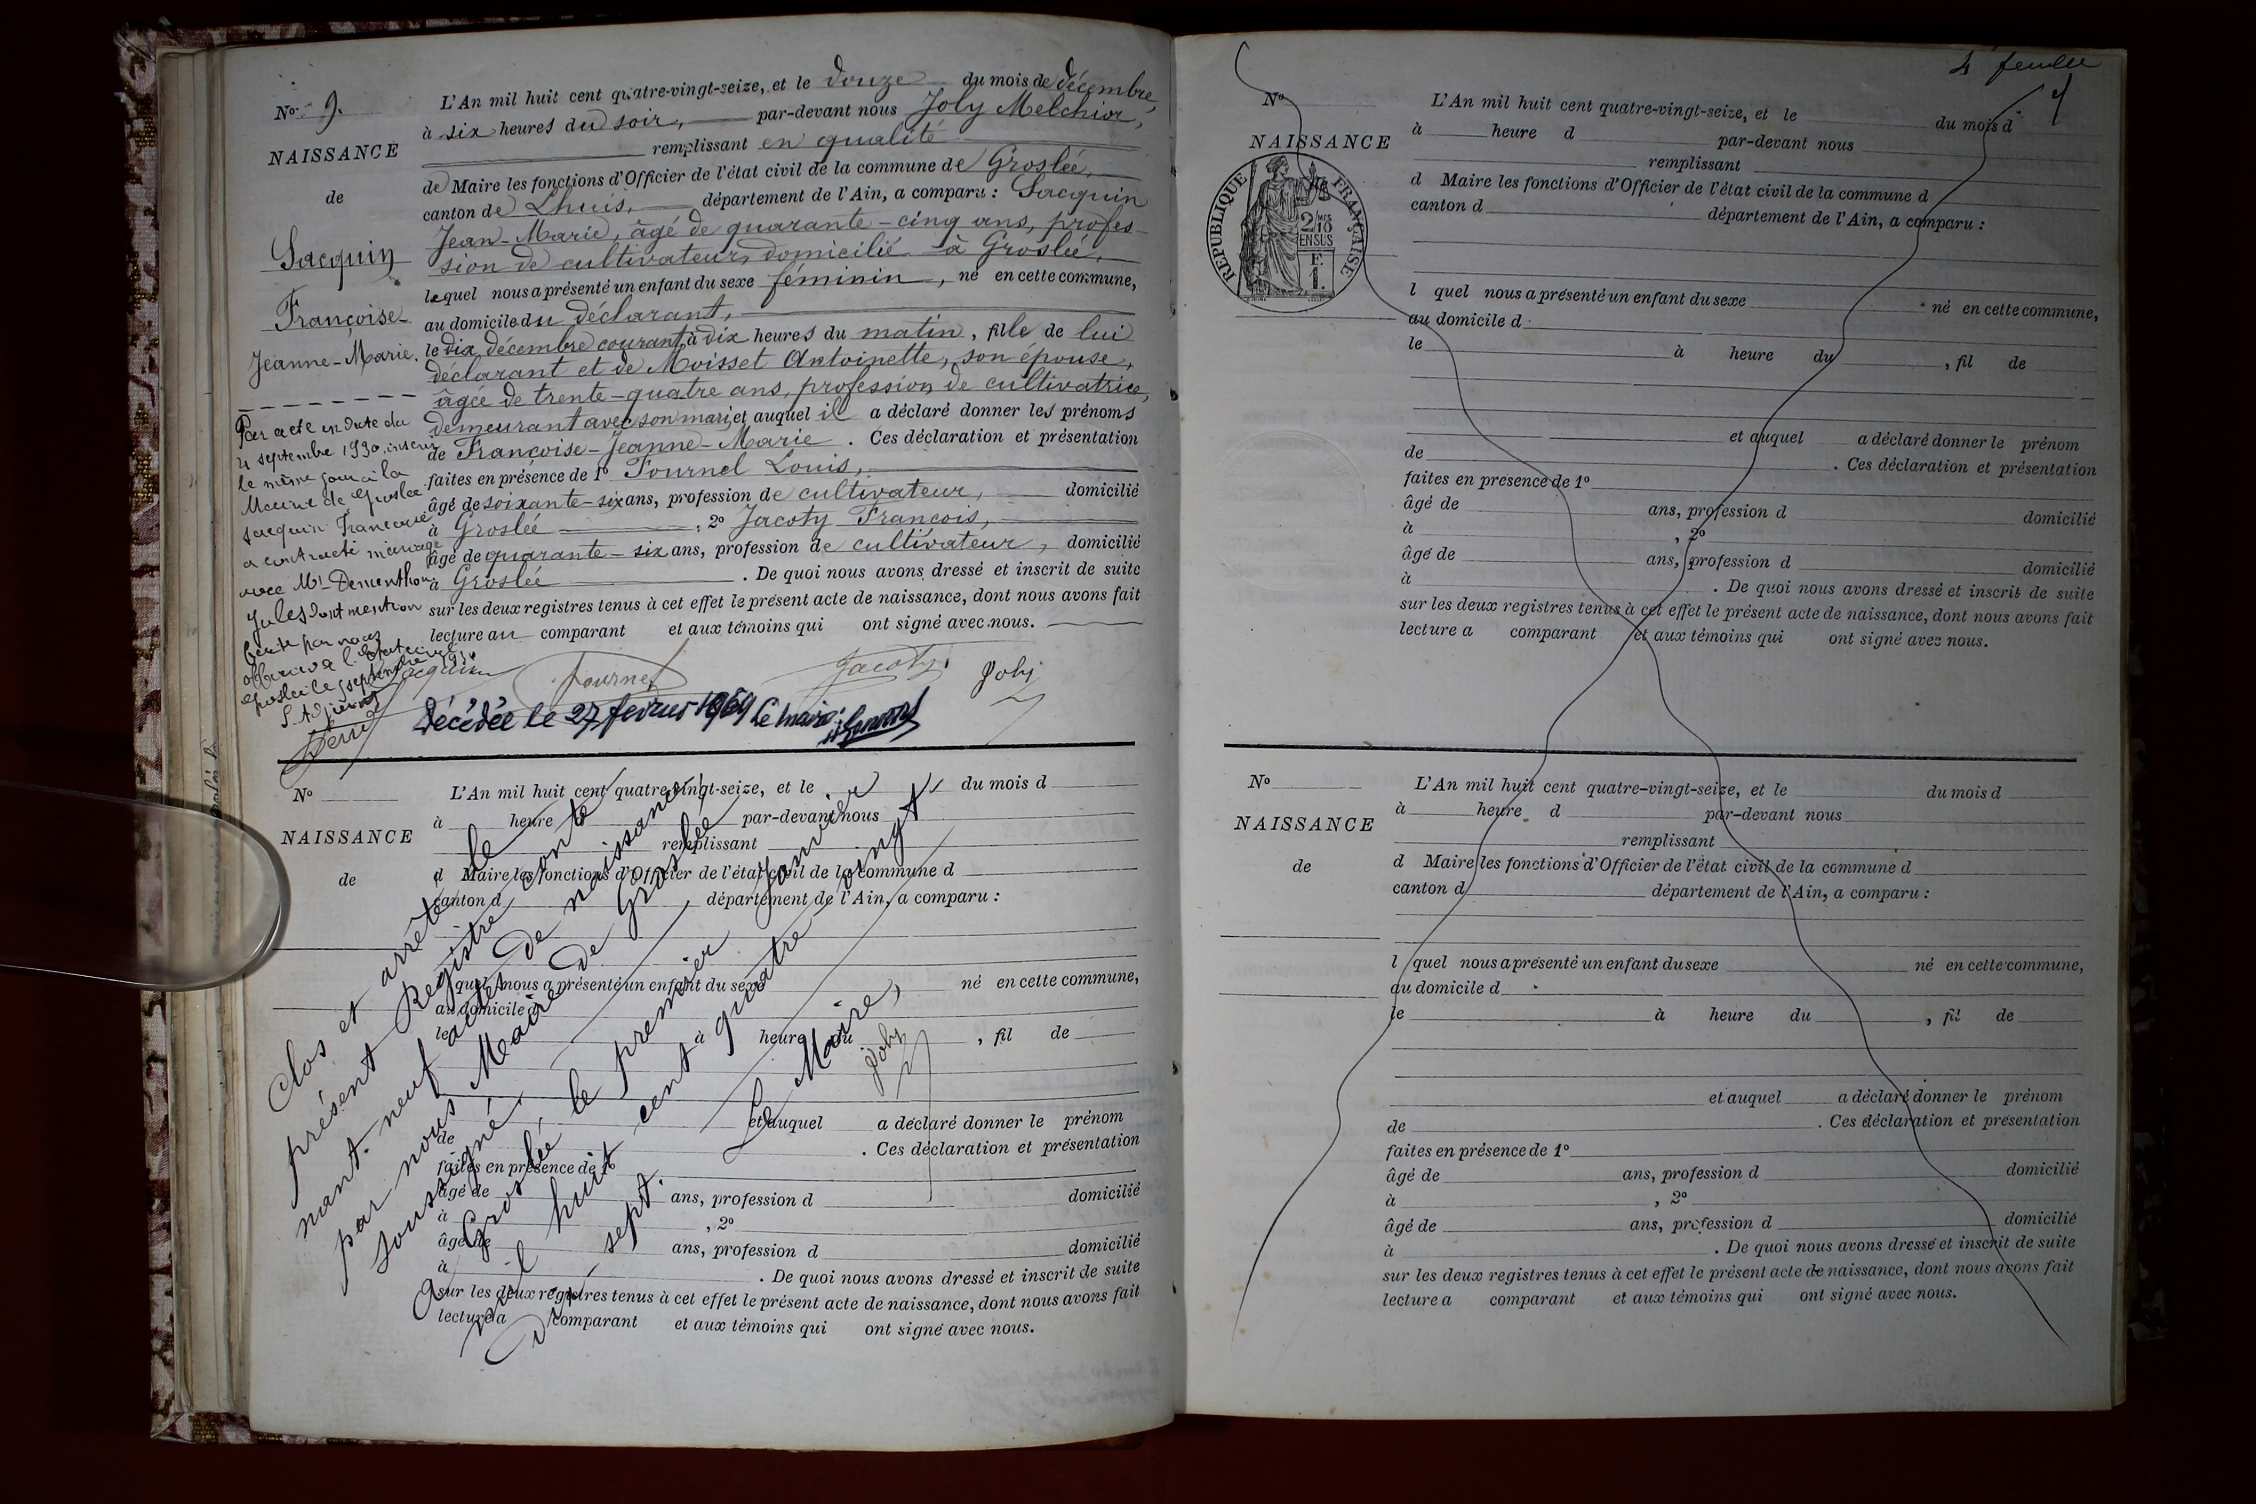 No 9.
NAISSANCE
de
Sacquin
Françoise-
Jeanne-Marie.
L'An mil huit cent quatre-vingt-seize, et le douze du mois de décembre,
à six heures du soir, par-devant nous Joly Melchior,
remplissant en qualité
de Maire les fonctions d'Officier de l'état civil de la commune de Groslée,
canton de Lhuis, département de l'Ain, a comparu : Sacquin
Jean-Marie, âgé de quarante-cinq ans, profes-
sion de cultivateur, domicilié à Groslée,
lequel nous a présenté un enfant du sexe féminin, né en cette commune,
au domicile du déclarant,
le dix décembre courant, à dix heures du matin, fille de lui
déclarant et de Moisset Antoinette, son épouse,
âgée de trente-quatre ans, profession de cultivatrice,
demeurant avec son mari, et auquel il a déclaré donner les prénoms
de Françoise-Jeanne-Marie. Ces déclaration et présentation
faites en présence de 1o Fournel Louis,
âgé de soixante-six ans, profession de cultivateur, domicilié
à Groslée, 2o Jacoty François,
âgé de quarante-six ans, profession de cultivateur, domicilié
à Groslée. De quoi nous avons dressé et inscrit de suite
sur les deux registres tenus à cet effet le présent acte de naissance, dont nous avons fait
lecture au comparant et aux témoins qui ont signé avec nous.
Sacquin Fournel Jacoty Joly
Par acte en date du
septembre 1930, inscrit
le même jour à la
Mairie de Groslée
Sacquin Francoise
a contracté mariage
avec Mr Dementhon
Jules dont mention
faite par nous
officier de l'Etat civil
Groslée le septembre
Décédée le 27 février 1969 Le maire:
No
NAISSANCE
de
L'An mil huit cent quatre-vingt-seize, et le du mois d
à heure par-devant nous
remplissant
d Maire les fonctions d'Officier de l'état civil de la commune d
canton d département de l'Ain, a comparu :
l quel nous a présenté un enfant du sexe né en cette commune,
au domicile d
le à heure du , fil de
et auquel a déclaré donner le prénom
de . Ces déclaration et présentation
faites en présence de 1o
âgé de ans, profession d domicilié
à , 2o
âgé de ans, profession d domicilié
à . De quoi nous avons dressé et inscrit de suite
sur les deux registres tenus à cet effet le présent acte de naissance, dont nous avons fait
lecture a comparant et aux témoins qui ont signé avec nous.
Clos et arrêté le
présent Registre conte
nant neuf actes de naissance
par nous Maire de Groslée
soussigné.
A Groslée le premier Janvier
mil huit cent quatre vingt
dix sept.
Le Maire,
Joly
4e feuille
No
NAISSANCE
RÉPUBLIQUE FRANÇAISE
2/10
EN SUS
F.
1.
L'An mil huit cent quatre-vingt-seize, et le du mois d
à heure d par-devant nous
remplissant
d Maire les fonctions d'Officier de l'état civil de la commune d
canton d département de l'Ain, a comparu :
l quel nous a présenté un enfant du sexe né en cette commune,
au domicile d
le à heure du , fil de
et auquel a déclaré donner le prénom
de . Ces déclaration et présentation
faites en présence de 1o
âgé de ans, profession d domicilié
à , 2o
âgé de ans, profession d domicilié
à . De quoi nous avons dressé et inscrit de suite
sur les deux registres tenus à cet effet le présent acte de naissance, dont nous avons fait
lecture a comparant et aux témoins qui ont signé avec nous.
No
NAISSANCE
de
L'An mil huit cent quatre-vingt-seize, et le du mois d
à heure d par-devant nous
remplissant
d Maire les fonctions d'Officier de l'état civil de la commune d
canton d département de l'Ain, a comparu :
l quel nous a présenté un enfant du sexe né en cette commune,
au domicile d
le à heure du , fil de
et auquel a déclaré donner le prénom
de . Ces déclaration et présentation
faites en présence de 1o
âgé de ans, profession d domicilié
à , 2o
âgé de ans, profession d domicilié
à . De quoi nous avons dressé et inscrit de suite
sur les deux registres tenus à cet effet le présent acte de naissance, dont nous avons fait
lecture a comparant et aux témoins qui ont signé avec nous.